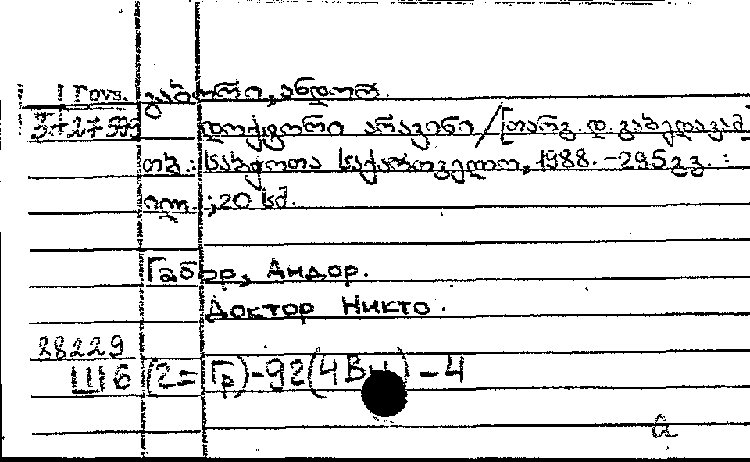 1 ГОУS. გაბორი, ანდორ.
გ+27593 დოქტორი არავინი / [თარგ. დ. გაბედავამ
თბ.: საბჭოთა საქართველო, 1988. - 295 გვ. :
ილ. ; 20 სმ.
Габор, Андор.
Доктор Никто.
28229
Ш16 (2=Гр)-92(4Вн)-4